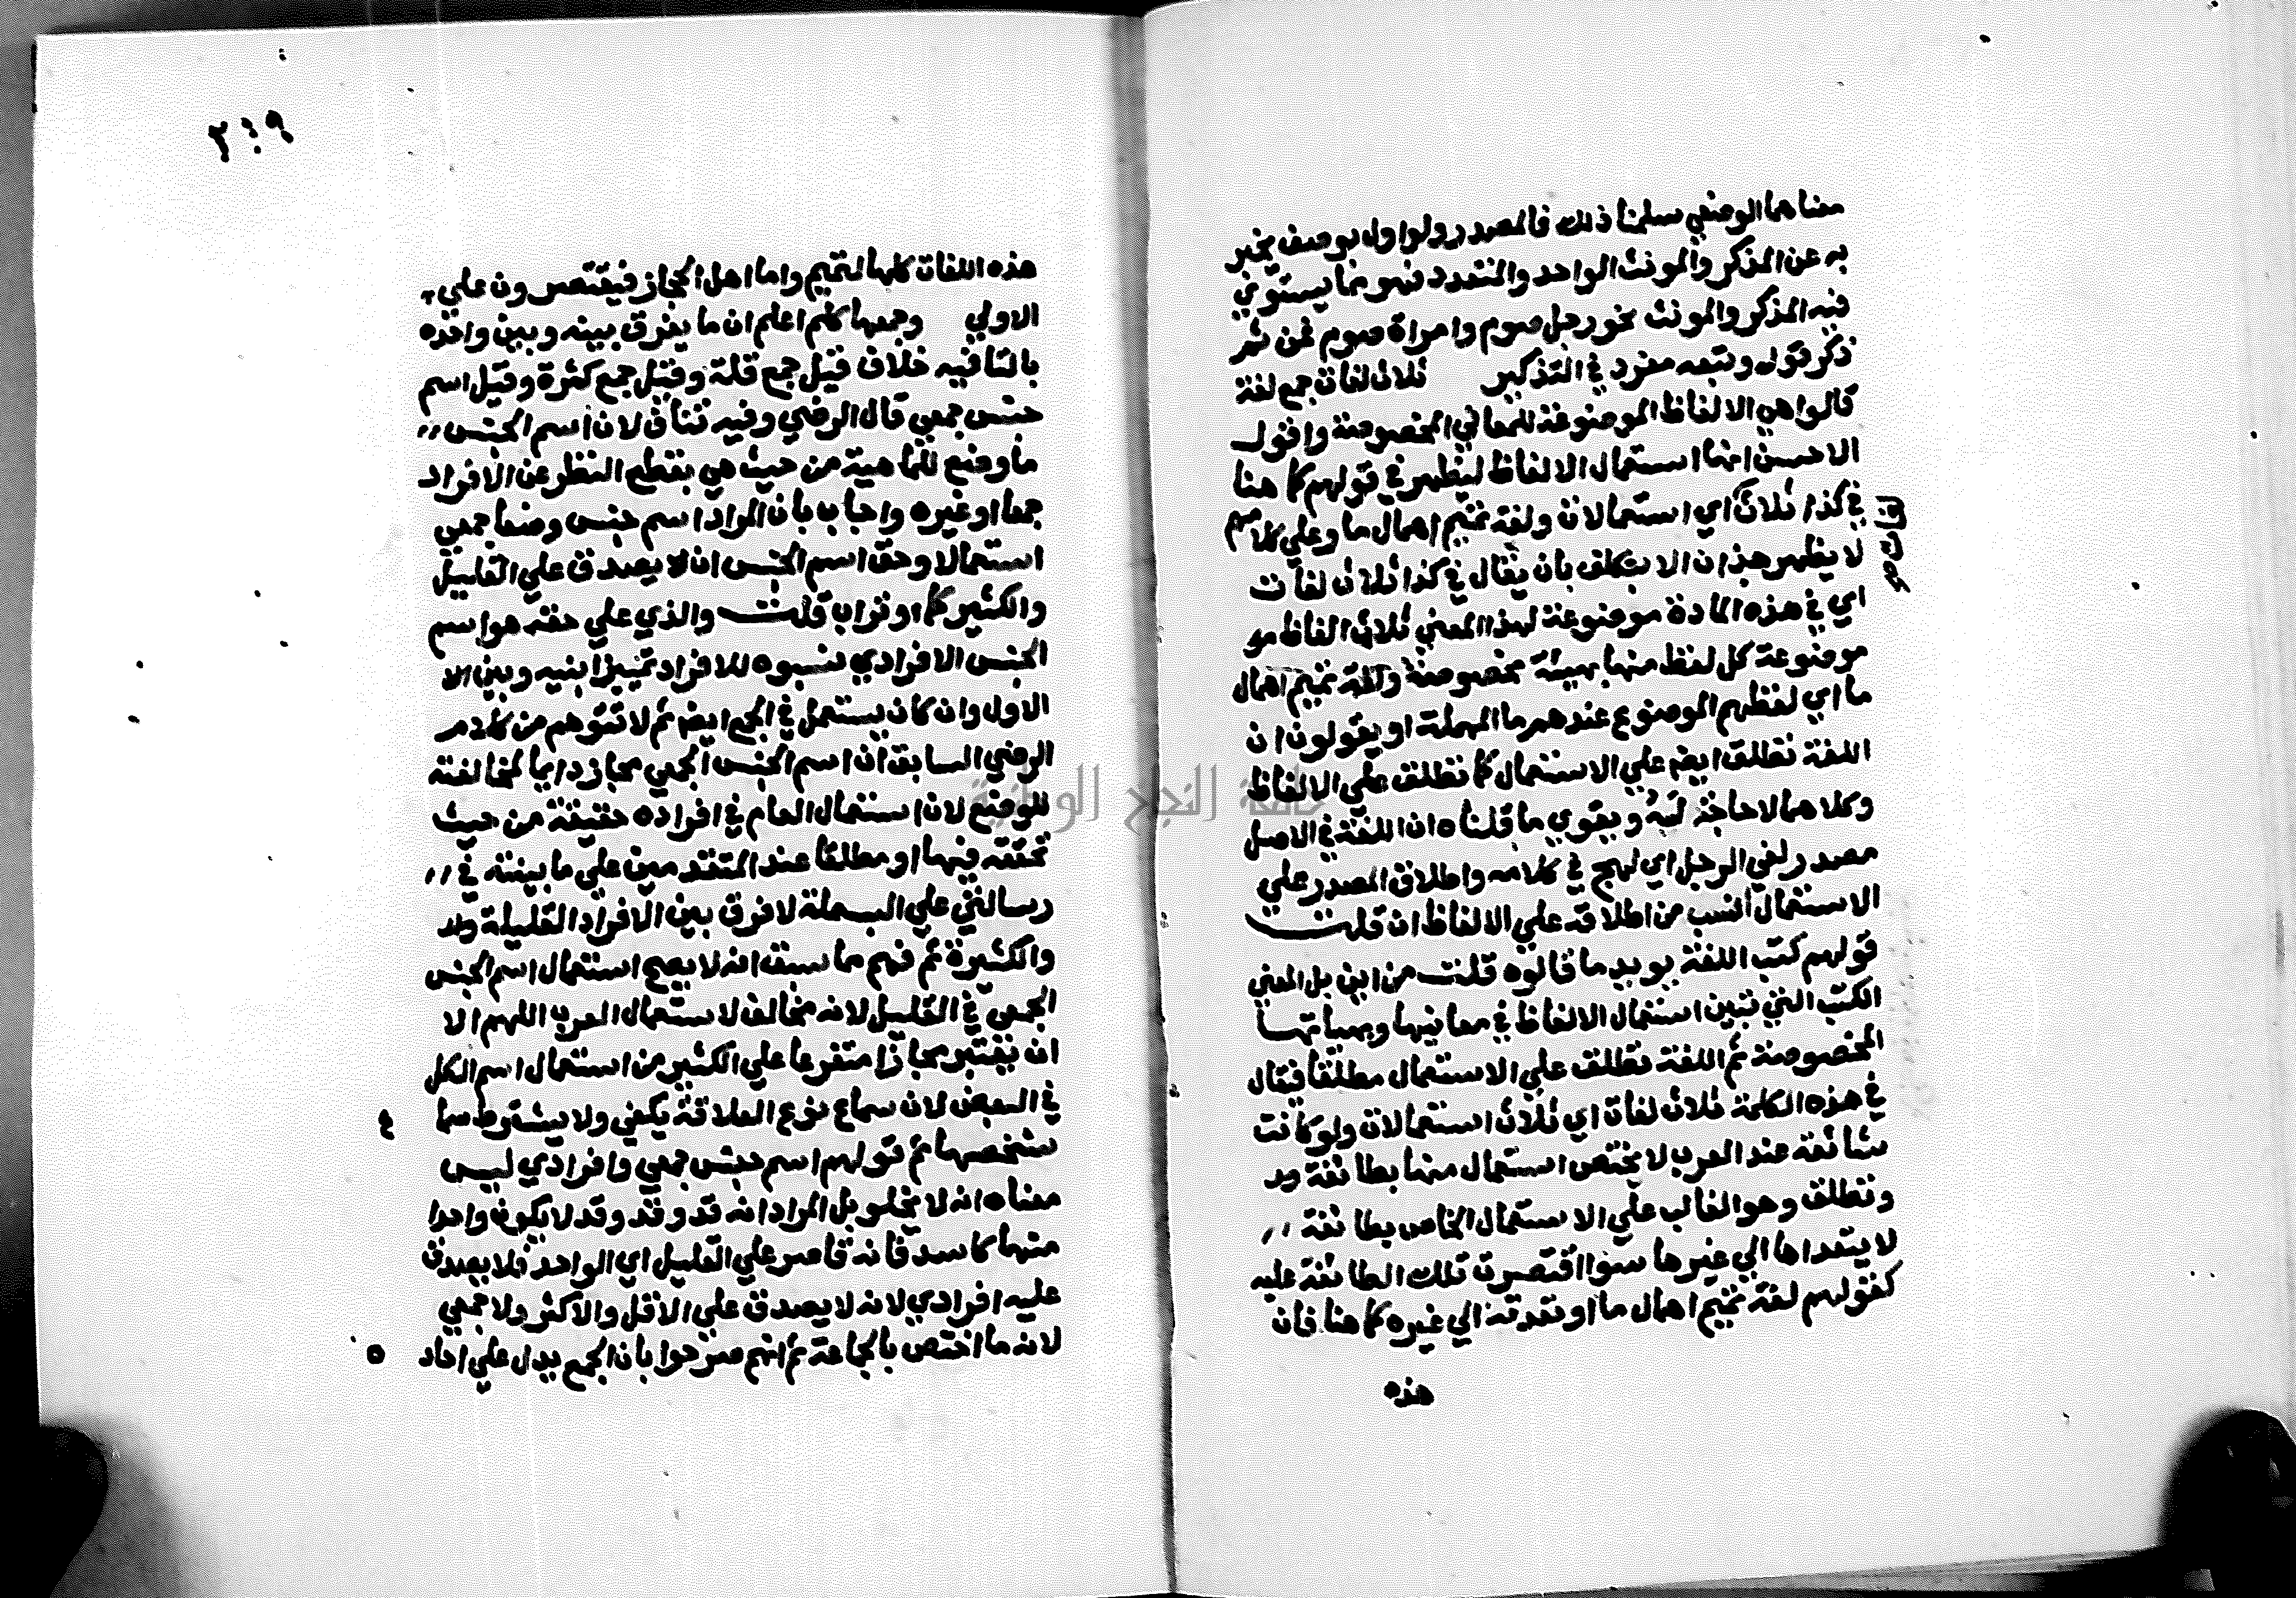 معناهما الوصفي سلمنا ذلك فالمصدر ولو اول بوصف يخبر
به عن المذكر والمونث الواحد والمتعدد فهو مما يستوي
فيه المذكر والمونث نحو رجل صوم وامراة صوم فمن ثم
ذكر قوله ونبعه مفرد في التذكير ثلاث لغات جمع لغة
قالوا هي الالفاظ الموضوعة للمعاني المخصوصة واقول
الاحسن انها استعمال الالفاظ ليظهر في قولهم كما هنا
في كذا ثلاث اي استعمالات ولغة تميم اهمال ما وعلي كلامهم
لا يظهر هذان الا بتكلف بان يقال في كذا ثلاث لغات
اي في هذه المادة موضوعة لهذا المعني ثلاث الفاظ مو
موضوعة كل لفظ منها بهيئة مخصوصة ولغة تميم اهمال
ما اي لفظهم الموضوع عندهم ما المهملة او يقولون ان
اللغة تطلق ايضم علي الاستعمال كما تطلق علي الالفاظ
وكلاهما لا حاجة له ويقوي ما قلناه ان اللغة في الاصل
مصدر لغي الرجل اي لهج في كلامه واطلاق المصدر علي
الاستعمال أنسب من اطلاقه علي الالفاظ ان قلت
قولهم كتب اللغة يويد ما قالوه قلت من اين بل المعني
الكتب التي تبين استعمال الالفاظ في معانيها وبهيئاتها
المخصوصة ثم اللغة تطلق علي الاستعمال مطلقا فيقال
في هذه الكلمة ثلاث لغات اي ثلاث استعمالات ولو كانت
شائعة عند العرب لا يختص استعمال منها بطائفة
وتطلق وهو الغالب علي الاستعمال الخاص بطائفة
لا يتعداها الي غيرها سوا اقتصرت تلك الطائفة عليه
كقولهم لغة تميم اهمال ما او تعدته الي غيره كما هنا فان
هذه
٢١٩
هذه اللغات كلها لتميم واما اهل الحجاز فيقتصرون علي
الاولي وجمعها كلم اعلم ان ما يفرق بينه وبين واحده
بالتا فيه خلاف قيل جمع قلة وقيل جمع كثرة وقيل اسم
جنس جمعي قال الرضي وفيه تناف لان اسم الجنس
ما وضع للماهية من حيث هي بقطع النظر عن الافراد
جمعا او غيره واجاب بان المراد اسم جنس وضعا جمعي
استعمالا وحق اسم الجنس ان لا يصدق علي القليل
والكثير كما او تراب قلت والذي علي حقه هو اسم
الجنس الافرادي نسبوه للافراد تمييزا بينه وبين الا
الاول وان كان يستعمل في الجمع ايضم ثم لا تتوهم من كلام
الرضي السابق ان اسم الجنس الجمعي مجاز دايما لمخالفته
للوضع لان استعمال العام في افراده حقيقة من حيث
تحققه فيها او مطلقا عند المتقدمين علي ما بينته في
رسالتي علي البسملة لا فرق بين الافراد القليلة ولا
والكثيرة ثم فهم مما سبق انه لا يصح استعمال اسم الجنس
الجمعي في القليل لانه مخالف لاستعمال العرب اللهم الا
ان يعتبر مجازا متفرعا علي الكثير من استعمال اسم الكل
في البعض لان سماع نوع العلاقة يكفي ولا يشترط سما ع
شخصها ثم قولهم اسم جنس جمعي وافرادي ليس
معناه انه لا يخلو بل المراد انه قد وقد وقد لا يكون واحدا
منهما كاسد فانه قاصر علي القليل اي الواحد فلا يصدق
عليه افرادي لانه لا يصدق علي الاقل والاكثر ولا جمعي
لانه ما اختص بالجماعة ثم انهم صرحوا بان الجمع يدل علي احاد ه
جامعة النجاح الوطنية